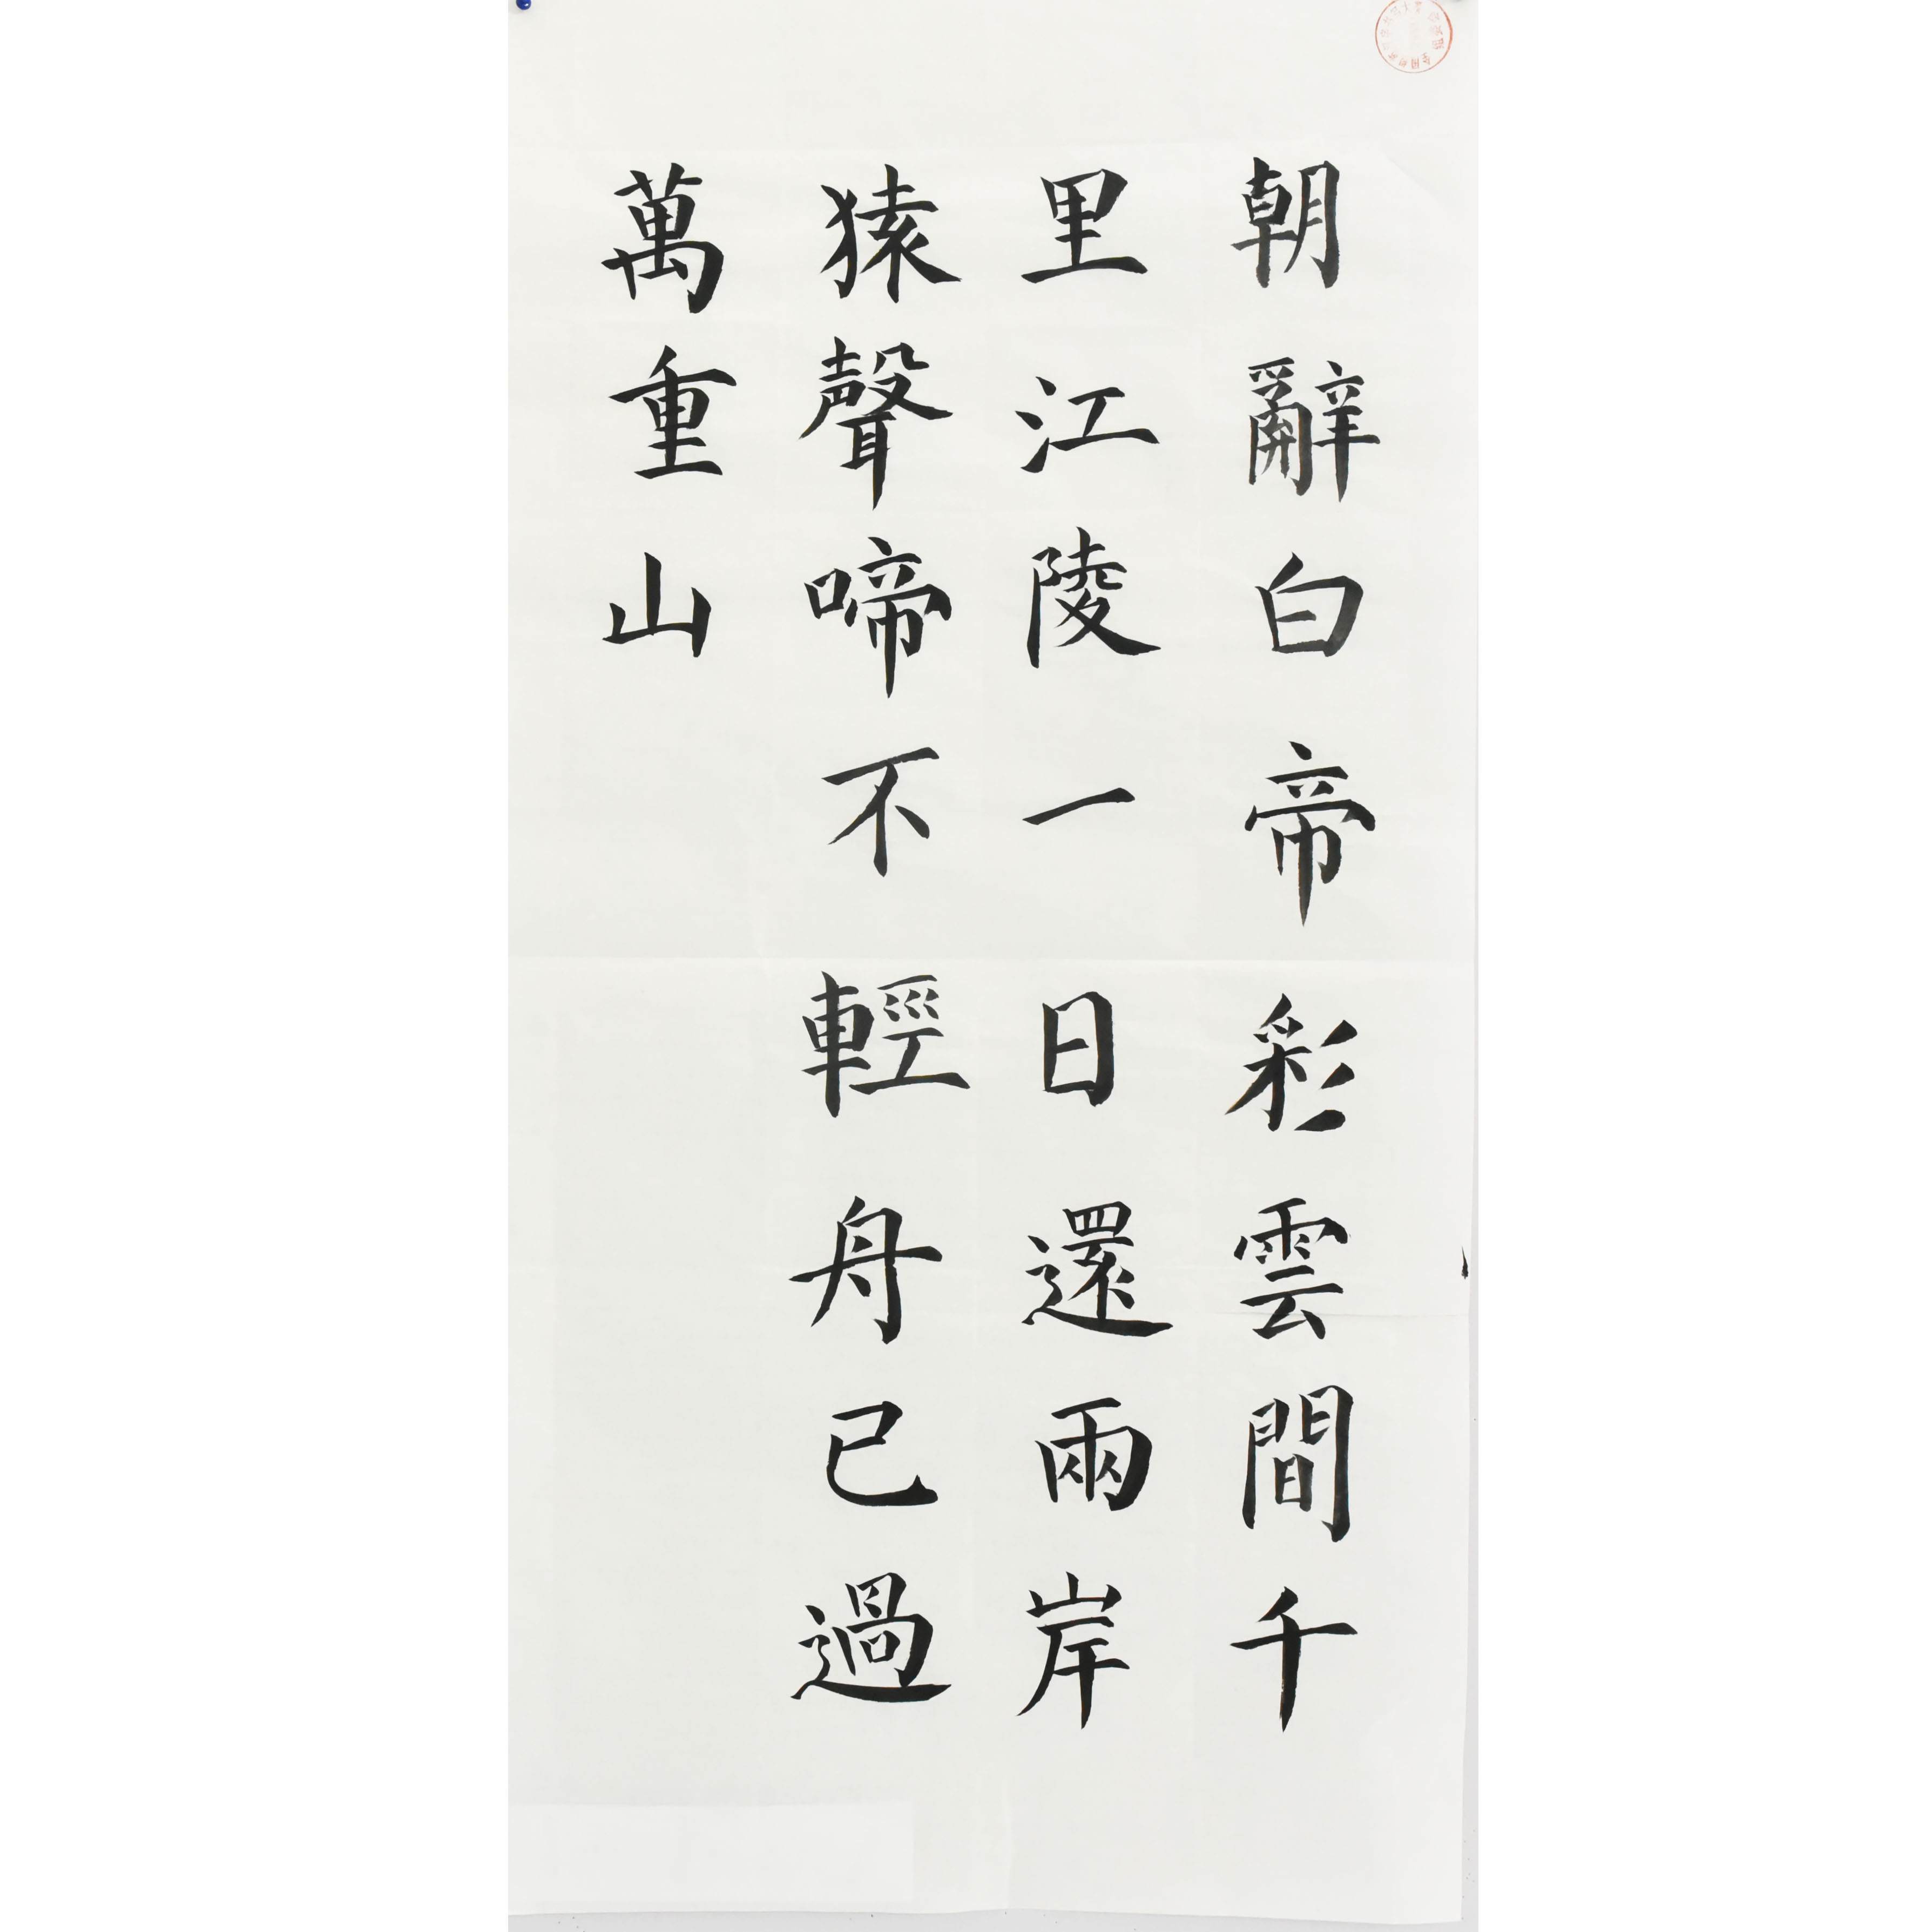 朝辭白帝彩雲間千
里江陵一日還兩岸
猿聲啼不輕舟已過
萬重山